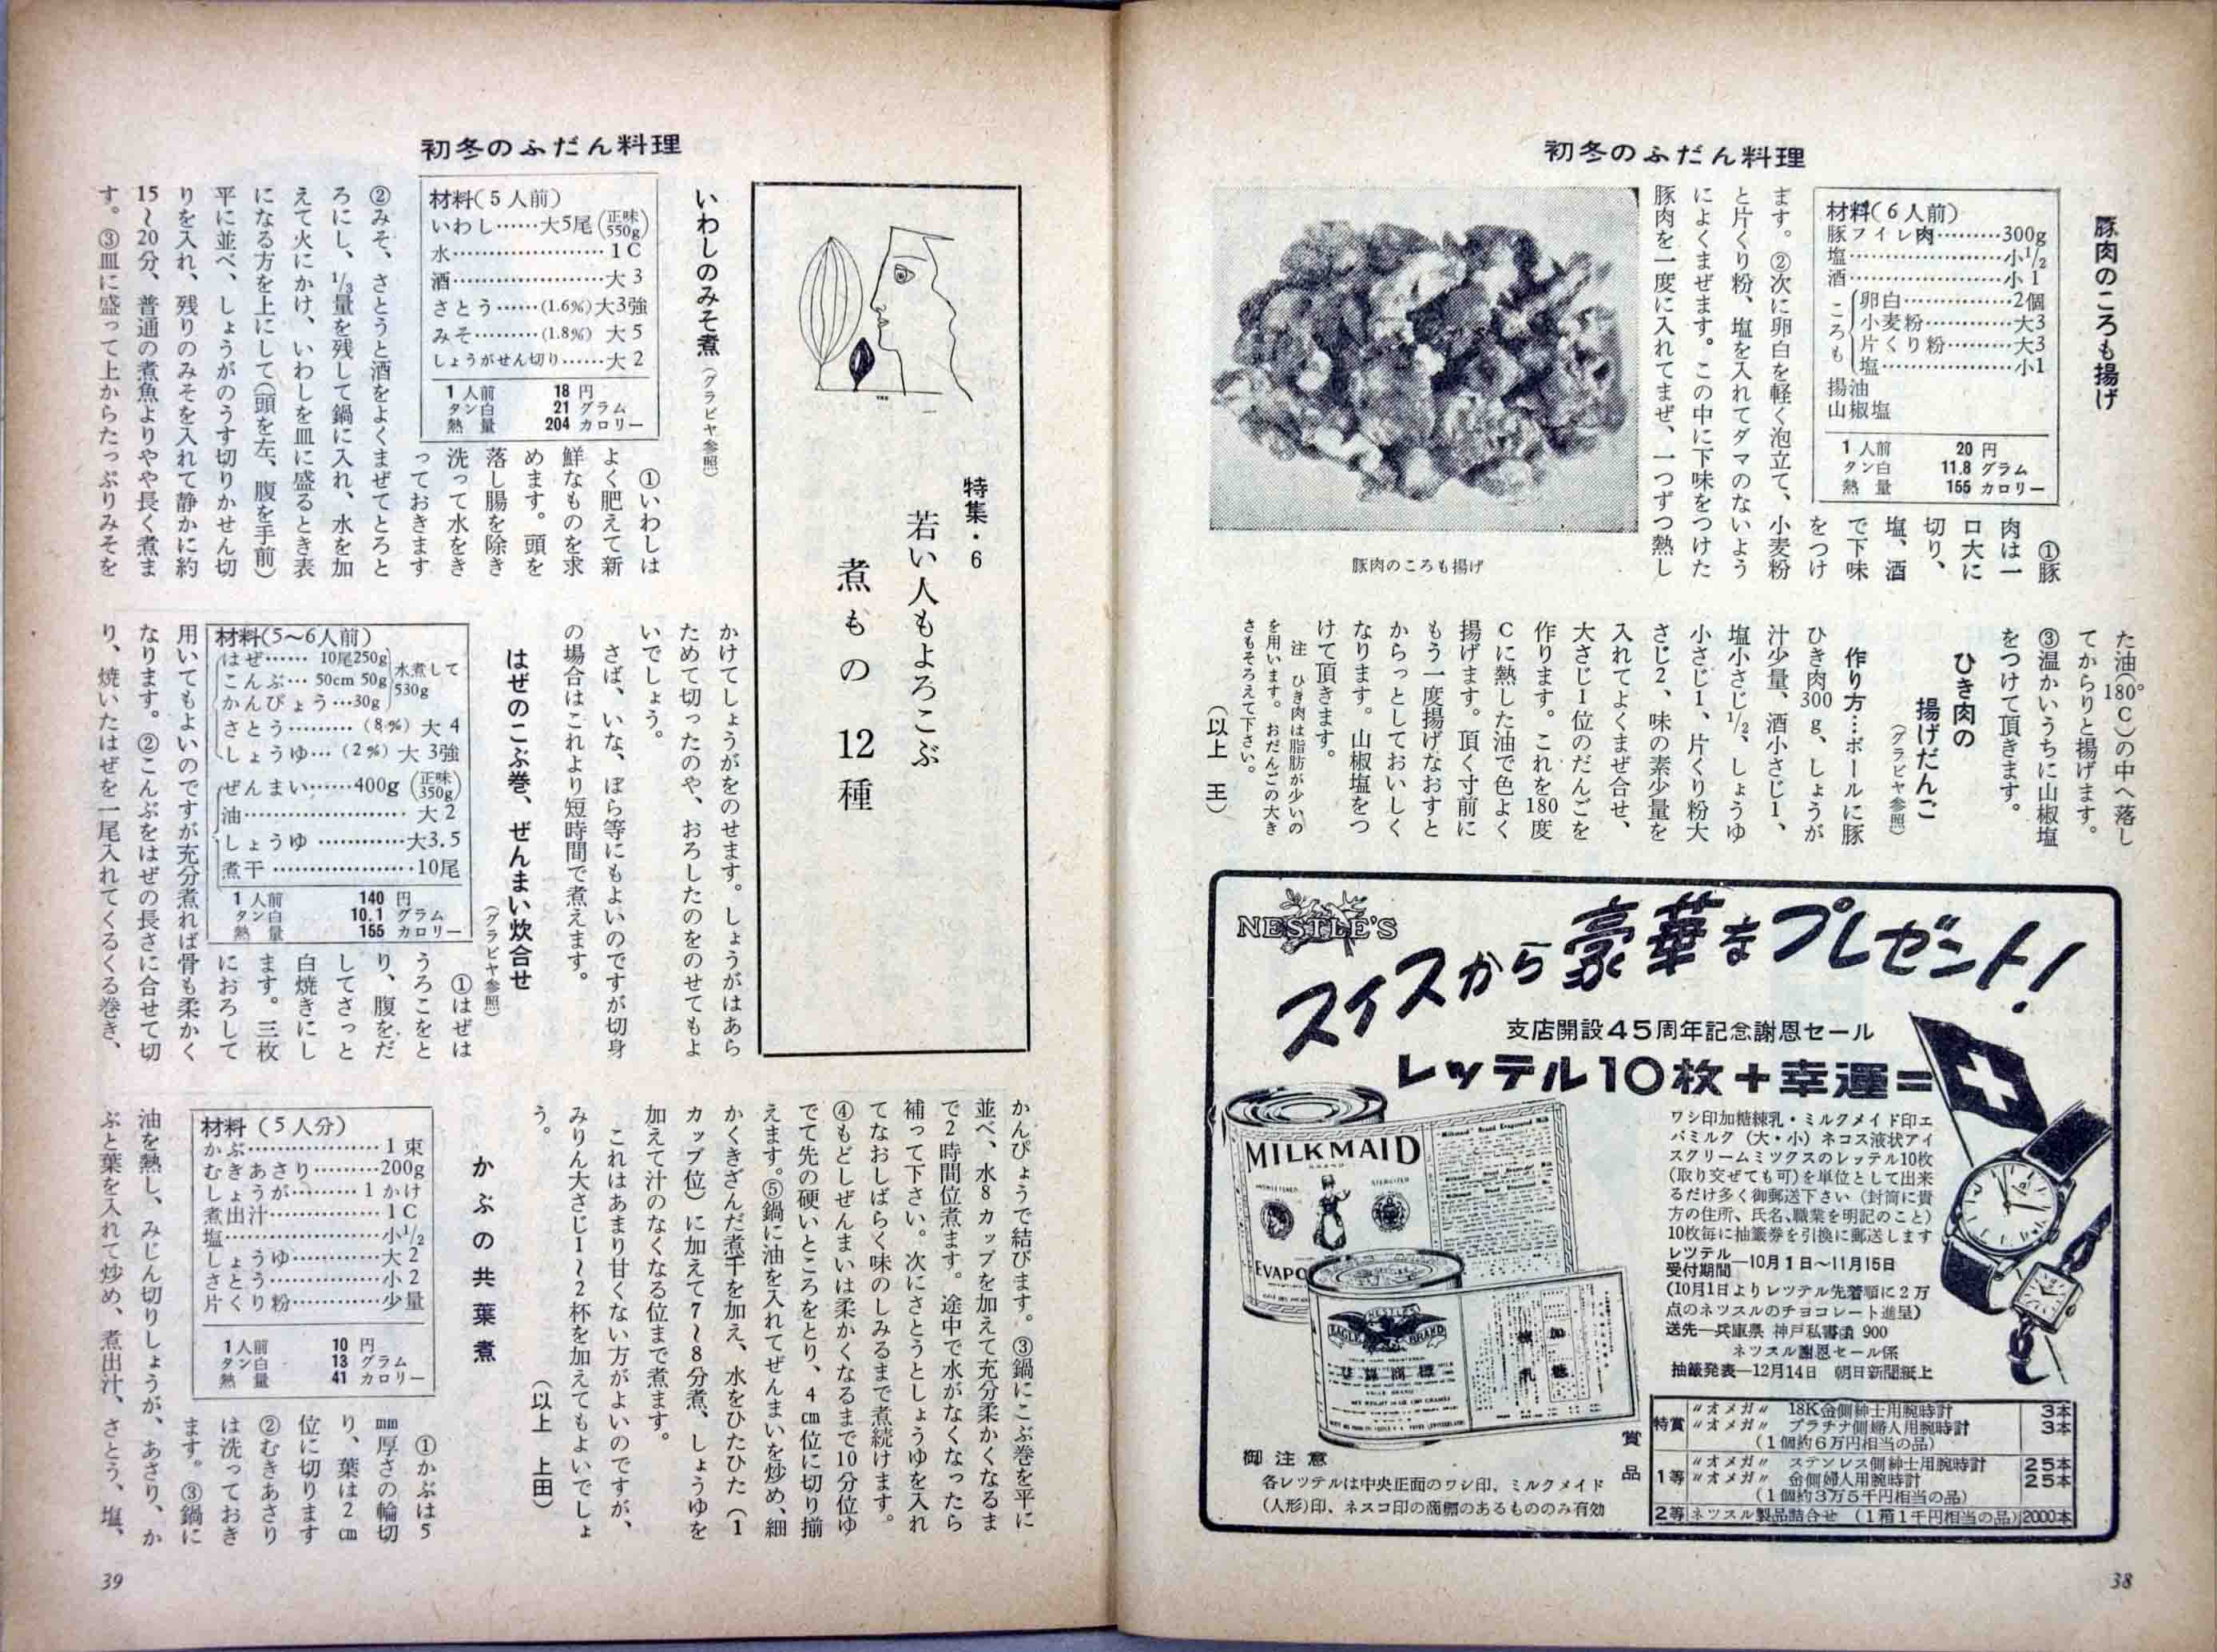 初冬のふだん料理
豚肉のころも揚げ
材料(6人前)
豚フイレ肉………300g
塩…………………小1/2
酒…………………小1
ころも
卵白……………2個
小麦粉…………大3
片くり粉………大3
塩………………小1
揚油
山椒塩
1人前 20 円
タン白 11.8 グラム
熱量 155 カロリー
①豚
肉は一
口大に
切り、
塩、酒
で下味
をつけ
ます。②次に卵白を軽く泡立て、小麦粉
と片くり粉、塩を入れてダマのないよう
によくまぜます。この中に下味をつけた
豚肉を一度に入れてまぜ、一つずつ熱し
豚肉のころも揚げ
た油(180°C)の中へ落し
てからりと揚げます。
③温かいうちに山椒塩
をつけて頂きます。
ひき肉の
揚げだんご
(グラビヤ参照)
作り方…ボールに豚
ひき肉300g、しょうが
汁少量、酒小さじ1、
塩小さじ1/2、しょうゆ
小さじ1、片くり粉大
さじ2、味の素少量を
入れてよくまぜ合せ、
大さじ1位のだんごを
作ります。これを180度
Cに熱した油で色よく
揚げます。頂く寸前に
もう一度揚げなおすと
からっとしておいしく
なります。山椒塩をつ
けて頂きます。
注 ひき肉は脂肪が少いの
を用います。おだんごの大き
さもそろえて下さい。
(以上 王)
NESTLÉ'S
スイスから豪華なプレゼント!
支店開設45周年記念謝恩セール
レッテル10枚+幸運=
MILKMAID
BRAND
EVAPO
NESTLÉ'S
EAGLE BRAND
ワシ印加糖練乳・ミルクメイド印エ
バミルク(大・小)ネコス液状アイ
スクリームミツクスのレッテル10枚
(取り交ぜても可)を単位として出来
るだけ多く御郵送下さい(封筒に貴
方の住所、氏名、職業を明記のこと)
10枚毎に抽籤券を引換に郵送します
レツテル受付期間―10月1日〜11月15日
(10月1日よりレツテル先着順に2万
点のネツスルのチョコレート進呈)
送先―兵庫県 神戸私書函 900
ネツスル謝恩セール係
抽籤発表―12月14日 朝日新聞紙上
賞品
特賞 〃オメガ〃 18K金側紳士用腕時計 3本
〃オメガ〃 プラチナ側婦人用腕時計 3本
(1個約6万円相当の品)
1等 〃オメガ〃 ステンレス側紳士用腕時計 25本
〃オメガ〃 金側婦人用腕時計 25本
(1個約3万5千円相当の品)
2等 ネツスル製品詰合せ (1箱1千円相当の品) 2000本
御注意
各レツテルは中央正面のワシ印、ミルクメイド
(人形)印、ネスコ印の商標のあるもののみ有効
38
初冬のふだん料理
特集・6
若い人もよろこぶ
煮もの12種
いわしのみそ煮(グラビヤ参照)
材料(5人前)
いわし……大5尾(正味550g)
水…………………1C
酒…………………大3
さとう……(1.6%)大3強
みそ………(1.8%) 大5
しょうがせん切り……大2
1人前 18 円
タン白 21 グラム
熱量 204 カロリー
①いわしは
よく肥えて新
鮮なものを求
めます。頭を
落し腸を除き
洗って水をき
っておきます
②みそ、さとうと酒をよくまぜてとろと
ろにし、1/3量を残して鍋に入れ、水を加
えて火にかけ、いわしを皿に盛るとき表
になる方を上にして(頭を左、腹を手前)
平に並べ、しょうがのうす切りかせん切
りを入れ、残りのみそを入れて静かに約
15〜20分、普通の煮魚よりやや長く煮ま
す。③皿に盛って上からたっぷりみそを
かけてしょうがをのせます。しょうがはあら
ためて切ったのや、おろしたのをのせてもよ
いでしょう。
さば、いな、ぼら等にもよいのですが切身
の場合はこれより短時間で煮えます。
はぜのこぶ巻、ぜんまい炊合せ
(グラビヤ参照)
材料(5〜6人前)
はぜ…… 10尾250g
こんぶ… 50cm 50g
かんぴょう…30g
水煮して530g
さとう………(8%) 大4
しょうゆ…(2%) 大3強
ぜんまい……400g(正味350g)
油…………………大2
しょうゆ…………大3.5
煮干………………10尾
1人前 140 円
タン白 10.1 グラム
熱量 155 カロリー
①はぜは
うろこをと
り、腹をだ
してさっと
白焼きにし
ます。三枚
におろして
用いてもよいのですが充分煮れば骨も柔かく
なります。②こんぶをはぜの長さに合せて切
り、焼いたはぜを一尾入れてくるくる巻き、
かんぴょうで結びます。③鍋にこぶ巻を平に
並べ、水8カップを加えて充分柔かくなるま
で2時間位煮ます。途中で水がなくなったら
補って下さい。次にさとうとしょうゆを入れ
てなおしばらく味のしみるまで煮続けます。
④もどしぜんまいは柔かくなるまで10分位ゆ
でて先の硬いところをとり、4cm位に切り揃
えます。⑤鍋に油を入れてぜんまいを炒め、細
かくきざんだ煮干を加え、水をひたひた(1
カップ位)に加えて7〜8分煮、しょうゆを
加えて汁のなくなる位まで煮ます。
これはあまり甘くない方がよいのですが、
みりん大さじ1〜2杯を加えてもよいでしょ
う。
(以上 上田)
かぶの共葉煮
材料(5人分)
かぶ………………1束
むきあさり………200g
しょうが………1かけ
煮出汁……………1C
塩…………………小1/2
しょうゆ…………大2
さとう……………小2
片くり粉…………少量
1人前 10 円
タン白 13 グラム
熱量 41 カロリー
①かぶは5
mm厚さの輪切
り、葉は2cm
位に切ります
②むきあさり
は洗っておき
ます。③鍋に
油を熱し、みじん切りしょうが、あさり、か
ぶと葉を入れて炒め、煮出汁、さとう、塩、
39